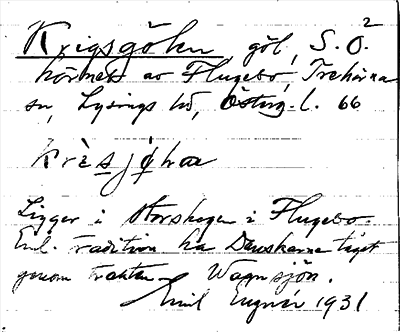 Krigsgölen göl, S.Ö.²
hörnet av Flugebo, Trehörna
sn, Lysings hd, Österg. l. 66
krèsjøhaa
Ligger i Storskogen i Flugebo.
Enl. tradition ha Danskarna tågat
genom trakten Wagnsjön.
Emil 1931